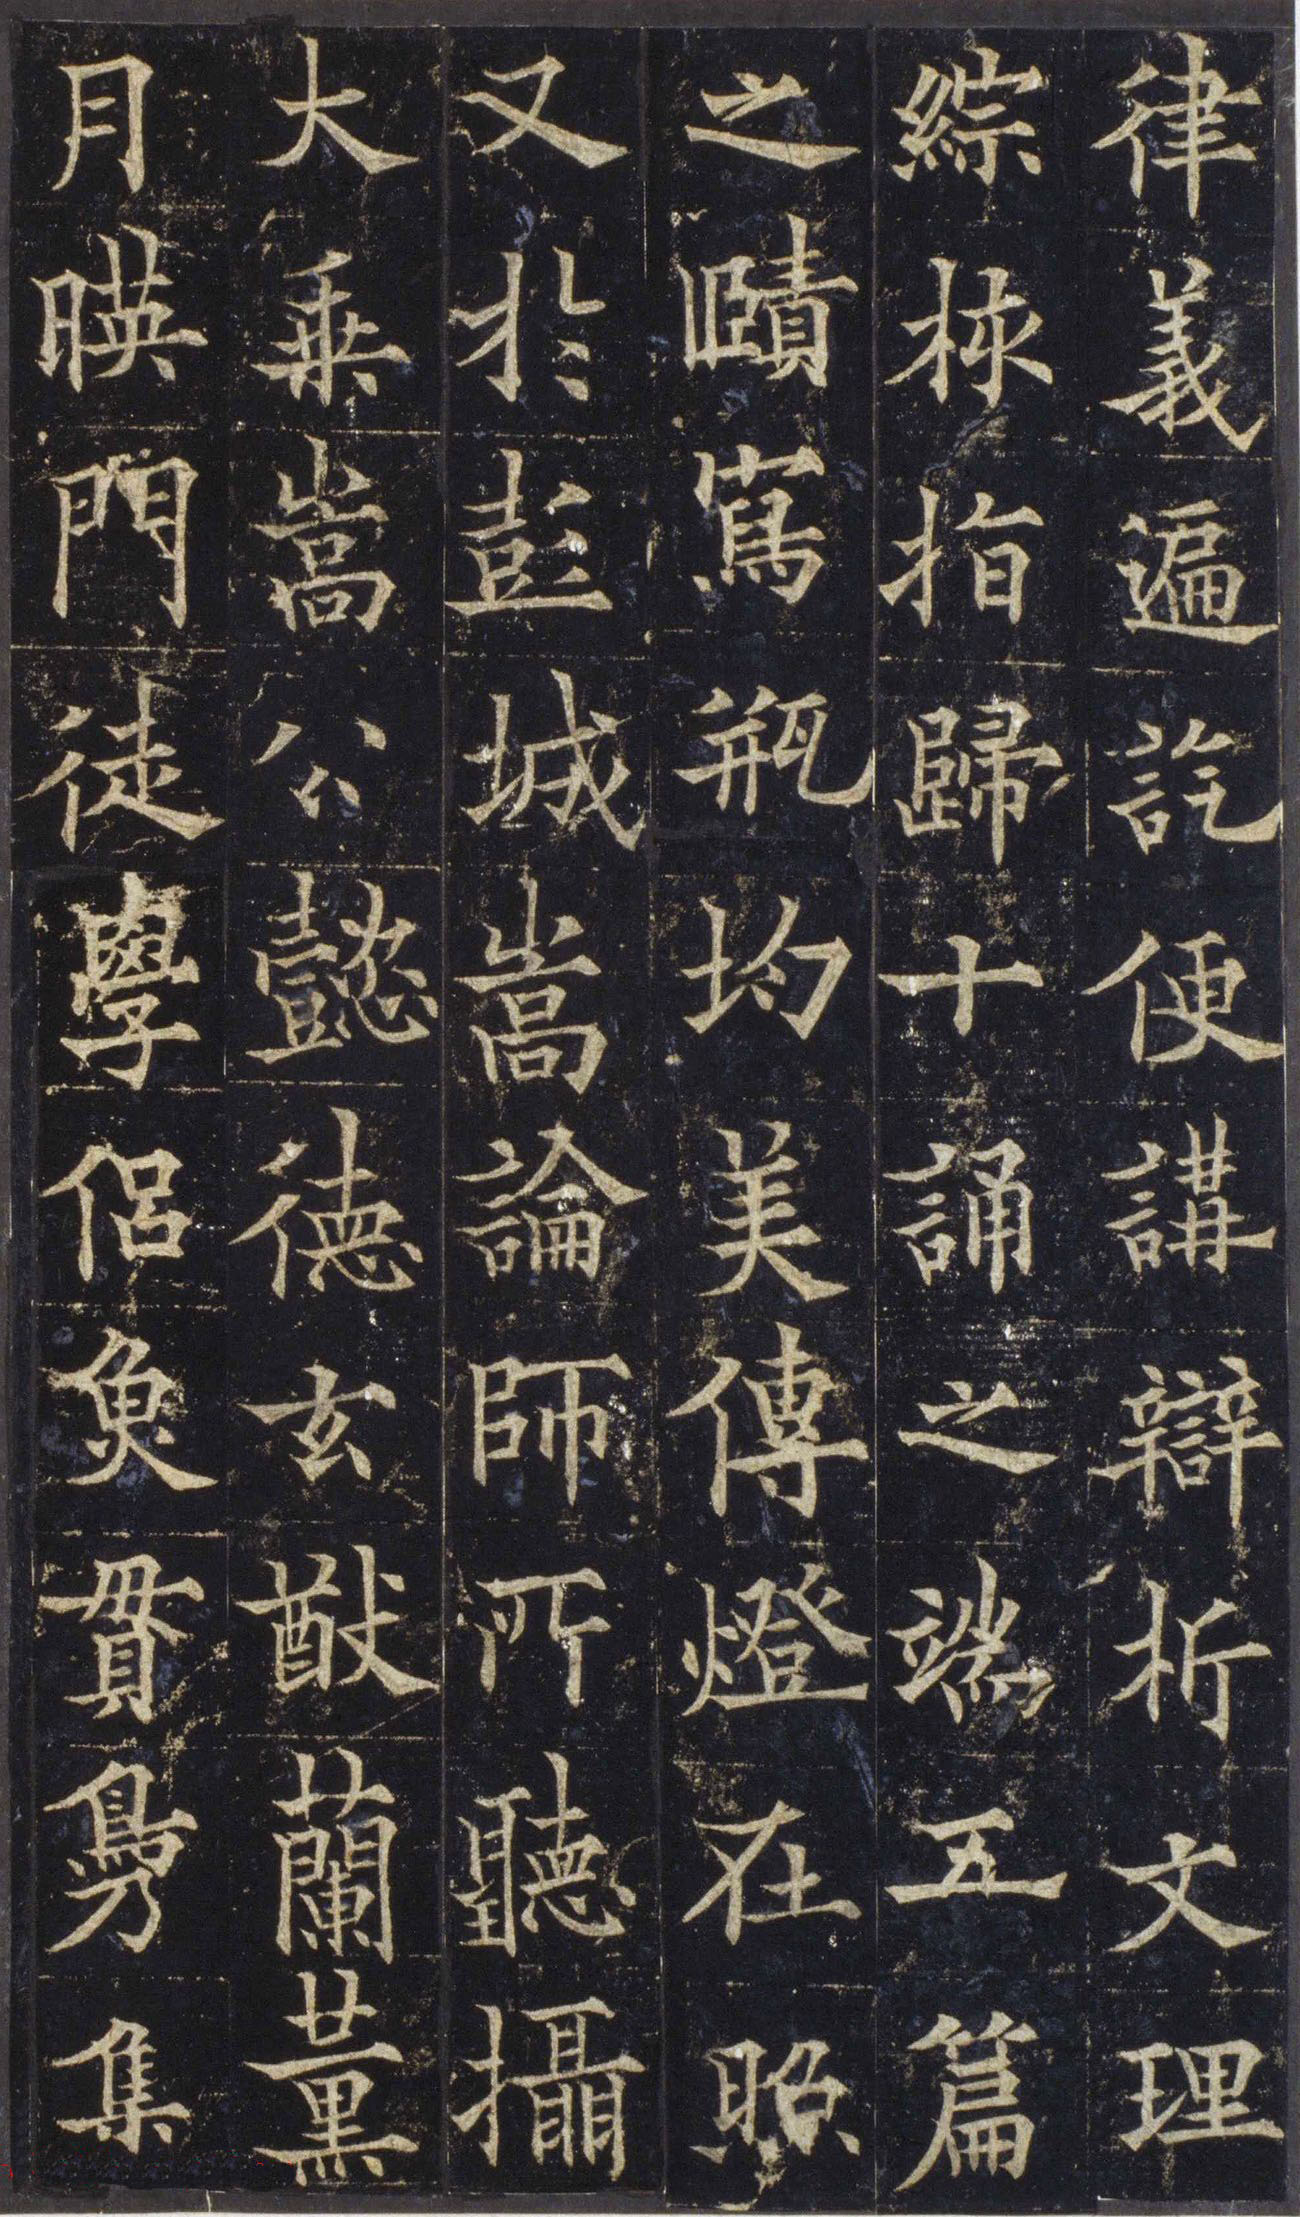 律義遍訖便講辯析文理
綜採指歸十誦之端五篇
之賾寫瓶均美傳燈在照
又於彭城嵩論師所聽攝
大乘嵩公懿德玄猷蘭薰
月暎門徒學侶魚貫鳧集